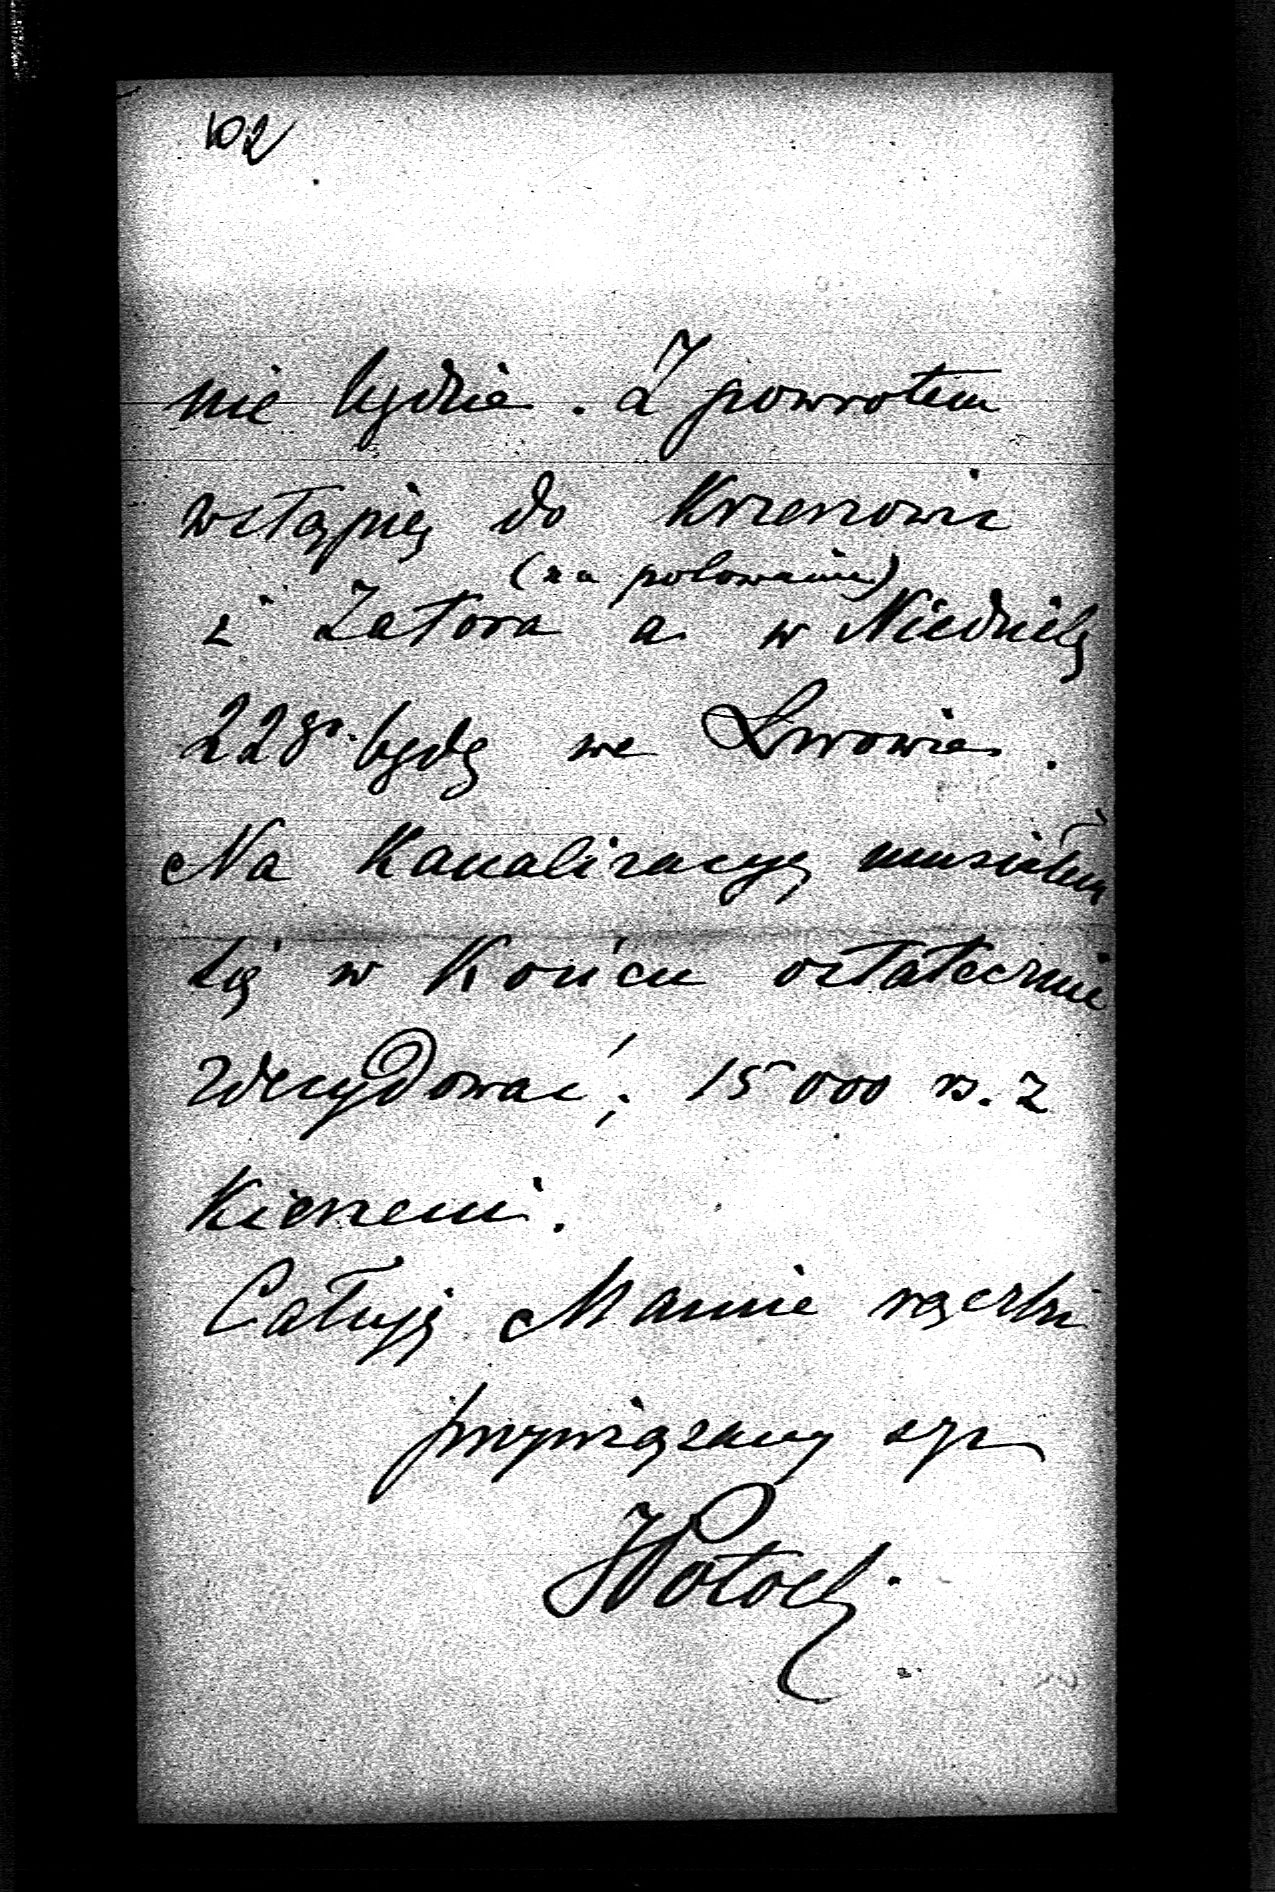 102
nie będzie. Z powrotem
wstąpię do Krzeszowic
(na polowanie)
i Zatora a w Niedzielę
22go będę we Lwowie.
Na Kanalizacyę musiałem
się w Końcu ostatecznie
zdecydować; 15000 rs. z
Kieszeni.
Całuję Mamie rączki
przywiązany syn
Potocki